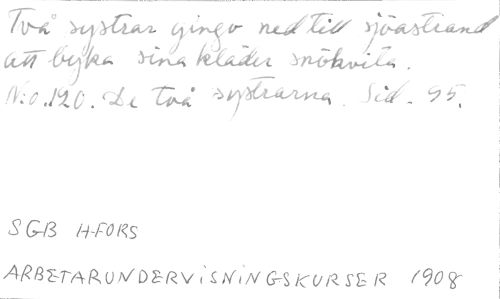 Två systrar gingo ned till sjöastrand
att byka sina kläder snöhvita.
N:o.120. De två systrarna. Sid. 95.
SGB H-FORS
ARBETARUNDERVISNINGSKURSER 1908